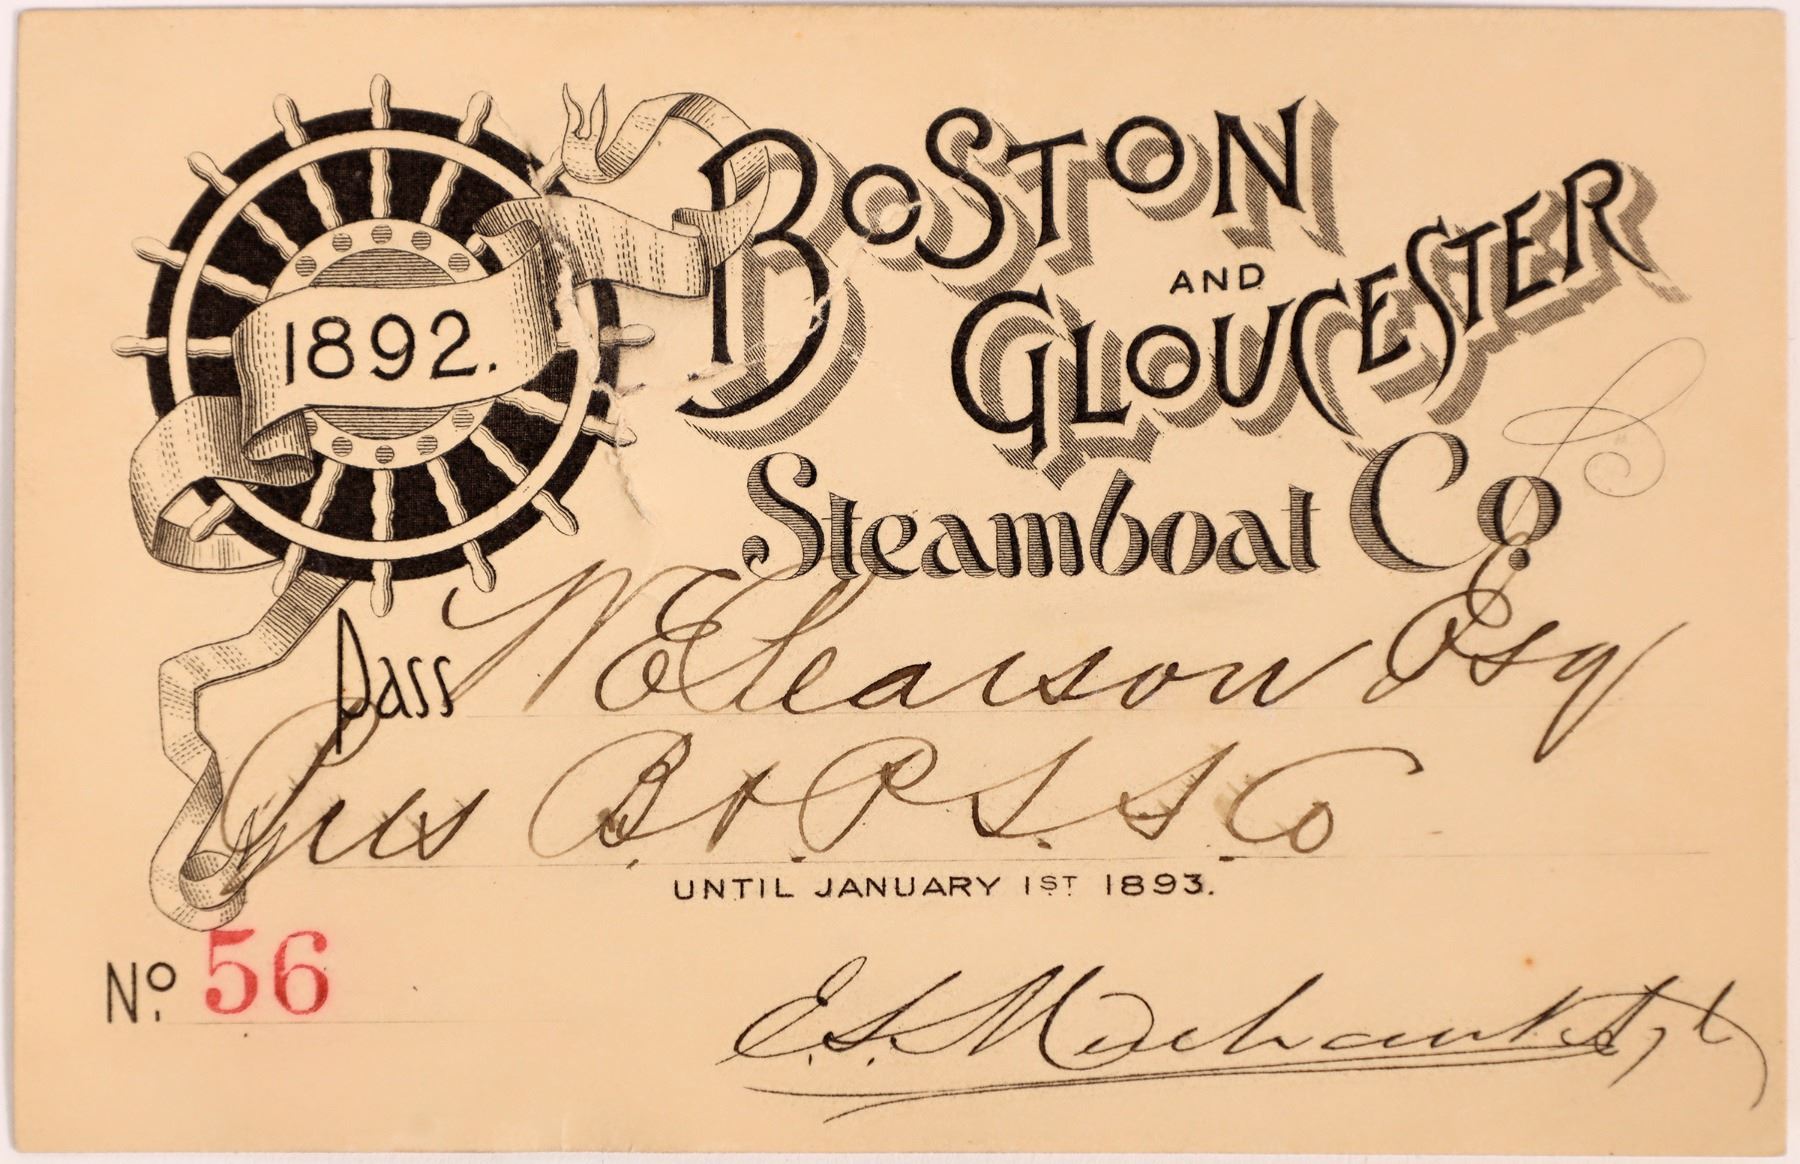 1892.
BOSTON
AND
GLOUCESTER
Steamboat Co.
Pass Esq
Pres B. & P. S. S. Co
UNTIL JANUARY 1ST 1893.
No. 56
E.S. Merchant Agt